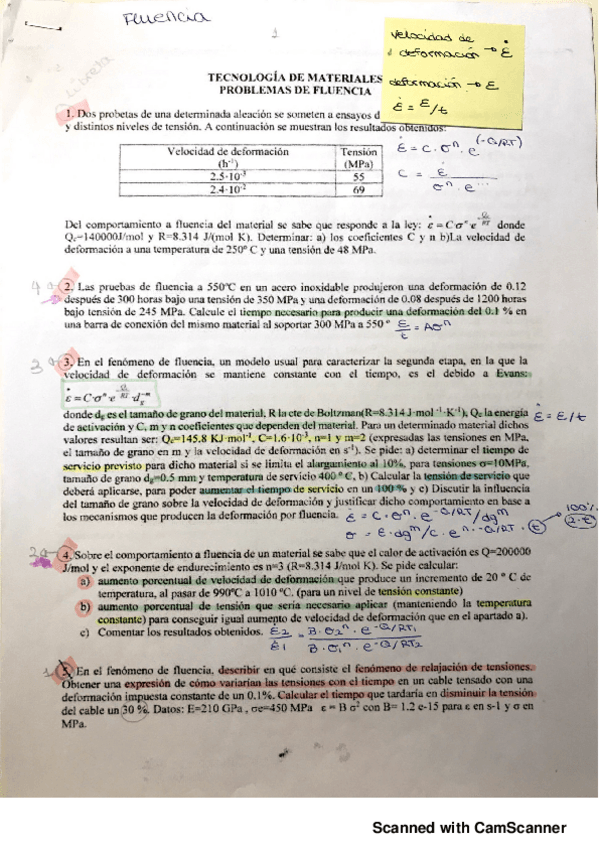 Fluencia
1
Velocidad de
deformación → ε̇
deformación → ε
ε̇ = ε/t
Libreta
TECNOLOGÍA DE MATERIALES
PROBLEMAS DE FLUENCIA
1. Dos probetas de una determinada aleación se someten a ensayos d
y distintos niveles de tensión. A continuación se muestran los resultados obtenidos:
Velocidad de deformación (h⁻¹) Tensión (MPa)
2.5·10⁻³ 55
2.4·10⁻² 69
ε̇ = C·σⁿ·e^(-Q/RT)
C = ε̇ / σⁿ·e^...
Del comportamiento a fluencia del material se sabe que responde a la ley: ε̇ = Cσⁿe^(-Qc/RT) donde
Qc=140000J/mol y R=8.314 J/(mol K). Determinar: a) los coeficientes C y n b)La velocidad de
deformación a una temperatura de 250° C y una tensión de 48 MPa.
2. Las pruebas de fluencia a 550°C en un acero inoxidable produjeron una deformación de 0.12
después de 300 horas bajo una tensión de 350 MPa y una deformación de 0.08 después de 1200 horas
bajo tensión de 245 MPa. Calcule el tiempo necesario para producir una deformación del 0.1 % en
una barra de conexión del mismo material al soportar 300 MPa a 550 °
ε/t = Aσⁿ
3. En el fenómeno de fluencia, un modelo usual para caracterizar la segunda etapa, en la que la
velocidad de deformación se mantiene constante con el tiempo, es el debido a Evans:
ε̇ = C·σⁿ·e^(-Qc/RT)·dg^-m
donde dg es el tamaño de grano del material, R la cte de Boltzman(R=8.314 J·mol⁻¹·K⁻¹), Qc la energía
de activación y C, m y n coeficientes que dependen del material. Para un determinado material dichos
valores resultan ser: Qc=145.8 KJ·mol⁻¹, C=1.6·10⁻³, n=1 y m=2 (expresadas las tensiones en MPa,
el tamaño de grano en m y la velocidad de deformación en s⁻¹). Se pide: a) determinar el tiempo de
servicio previsto para dicho material si se limita el alargamiento al 10%, para tensiones σ=10MPa,
tamaño de grano dg=0.5 mm y temperatura de servicio 400 ° C, b) Calcular la tensión de servicio que
deberá aplicarse, para poder aumentar el tiempo de servicio en un 100 % y c) Discutir la influencia
del tamaño de grano sobre la velocidad de deformación y justificar dicho comportamiento en base a
los mecanismos que producen la deformación por fluencia.
ε̇ = ε/t
ε̇ = C·σⁿ·e^-Q/RT/dg^m
σ = ε·dg^m/C·e^-Q/RT·t
100%
2·t
4. Sobre el comportamiento a fluencia de un material se sabe que el calor de activación es Q=200000
J/mol y el exponente de endurecimiento es n=3 (R=8.314 J/mol K). Se pide calcular:
a) aumento porcentual de velocidad de deformación que produce un incremento de 20 ° C de
temperatura, al pasar de 990°C a 1010 °C. (para un nivel de tensión constante)
b) aumento porcentual de tensión que sería necesario aplicar (manteniendo la temperatura
constante) para conseguir igual aumento de velocidad de deformación que en el apartado a).
c) Comentar los resultados obtenidos.
ε̇2/ε̇1 = B·σ2ⁿ·e^-Q/RT1 / B·σ1ⁿ·e^-Q/RT2
5. En el fenómeno de fluencia, describir en qué consiste el fenómeno de relajación de tensiones.
Obtener una expresión de cómo variarían las tensiones con el tiempo en un cable tensado con una
deformación impuesta constante de un 0.1%. Calcular el tiempo que tardaría en disminuir la tensión
del cable un 30 %. Datos: E=210 GPa , σe=450 MPa ε = B σ² con B= 1.2 e-15 para ε en s-1 y σ en
MPa.
Scanned with CamScanner